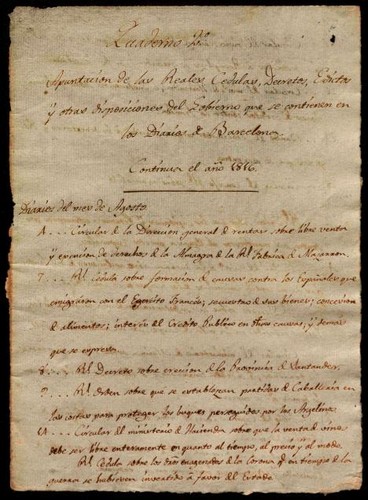 Quaderno 2º
Apuntacion de las Reales Cedulas, Decretos, Edictos
y otras disposiciones del Gobierno que se contienen en
los Diarios de Barcelona
Continua el año 1816
Diarios del mes de Agosto
Circular de la Direccion general de rentas sobre libre venta
y exencion de derechos de la Almagra de la Rl. fabrica de Mazarron
7 . . . Rl. Cedula sobre formacion de causas contra los Españoles que
emigraron con el Egercito Frances; secuestro de sus bienes; concesion
de alimentos; interv.n del Credito Publico en dhas causas; y demas
que se expresa.
8 . . . Rl. Decreto sobre ereccion de la Provincia de Santander
9 . . . Rl. Orden sobre que se establezcan partidas de Caballeria en
las costas para proteger los buques perseguidos por los Argelinos
Circular del ministerio de Hacienda sobre que la venta de vino
debe ser libre enteramente en quanto al tiempo, al precio y al modo.
Rl. Cedula sobre los dros enagenados de la Corona q.e en tiempo de la
guerra se hubiesen invertido à favor del Estado